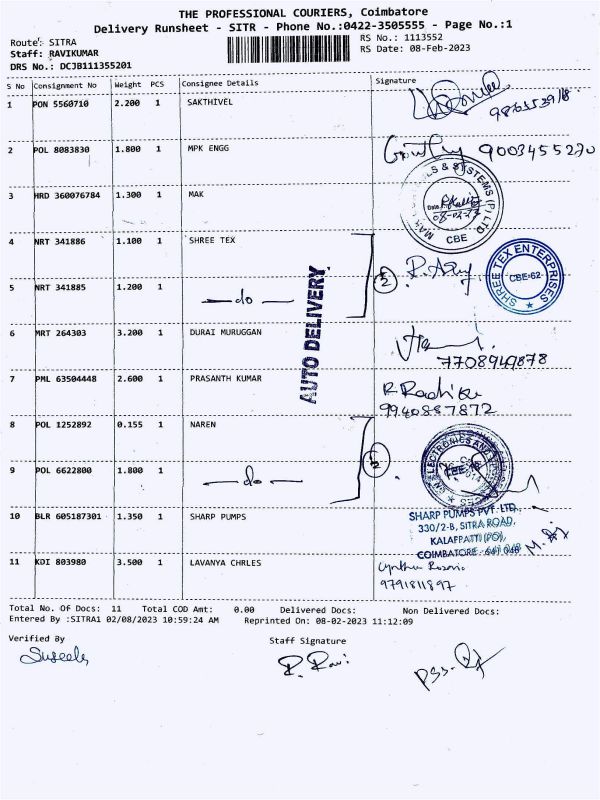 THE PROFESSIONAL COURIERS, Coimbatore
Delivery Runsheet - SITR - Phone No.:0422-3505555 - Page No.:1
Route: SITRA
RS No.: 1113552
Staff: RAVIKUMAR
RS Date: 08-Feb-2023
DRS No.: DCJB111355201
S No Consignment No Weight PCS Consignee Details Signature
1 PON 5560710 2.200 1 SAKTHIVEL
2 POL 8083830 1.800 1 MPK ENGG 9003455270
3 HRD 360076784 1.300 1 MAK
& SYSTEMS (P) LTD
CBE
4 NRT 341886 1.100 1 SHREE TEX
SHREE TEX ENTERPRISES
CBE-62
5 NRT 341885 1.200 1 —do—
2
AUTO DELIVERY
6 MRT 264303 3.200 1 DURAI MURUGGAN
7708949878
7 PML 63504448 2.600 1 PRASANTH KUMAR
9940887872
8 POL 1252892 0.155 1 NAREN
9 POL 6622800 1.800 1 —do—
2
ELECTRONICS AND
10 BLR 605187301 1.350 1 SHARP PUMPS
SHARP PUMPS PVT. LTD.
330/2-B, SITRA ROAD,
KALAPPATTI (PO),
COIMBATORE - 641 048
11 KDI 803980 3.500 1 LAVANYA CHRLES
9791811897
Total No. Of Docs: 11 Total COD Amt: 0.00 Delivered Docs: Non Delivered Docs:
Entered By :SITRA1 02/08/2023 10:59:24 AM Reprinted On: 08-02-2023 11:12:09
Verified By Staff Signature
Suseela R. Ravi